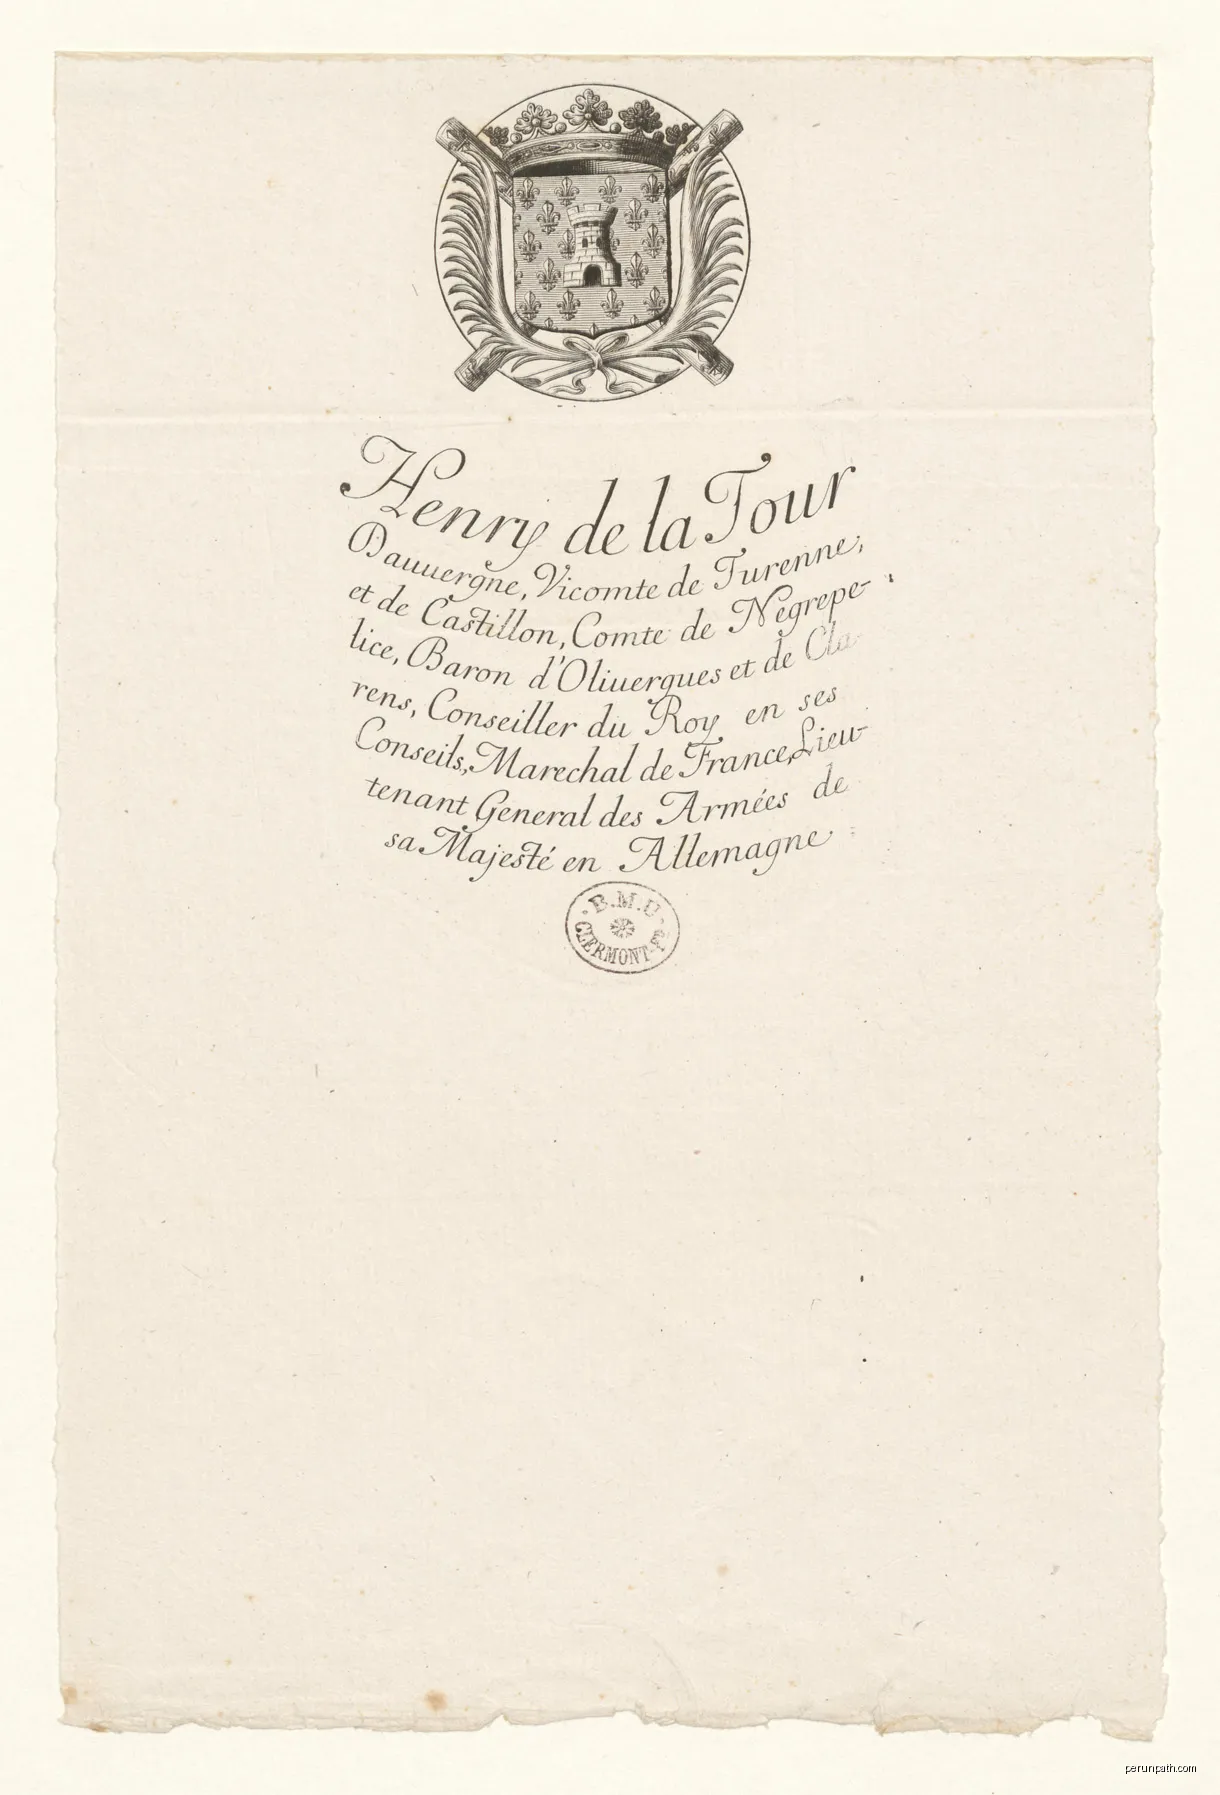 Henry de la Tour
Dauuergne, Vicomte de Turenne,
et de Castillon, Comte de Negrepe-
lice, Baron d'Oliuergues et de Cla
rens, Conseiller du Roy en ses
Conseils, Marechal de France, Lieu-
tenant General des Armées de
sa Majesté en Allemagne
B.M.U
CLERMONT-Fd
perunpath.com